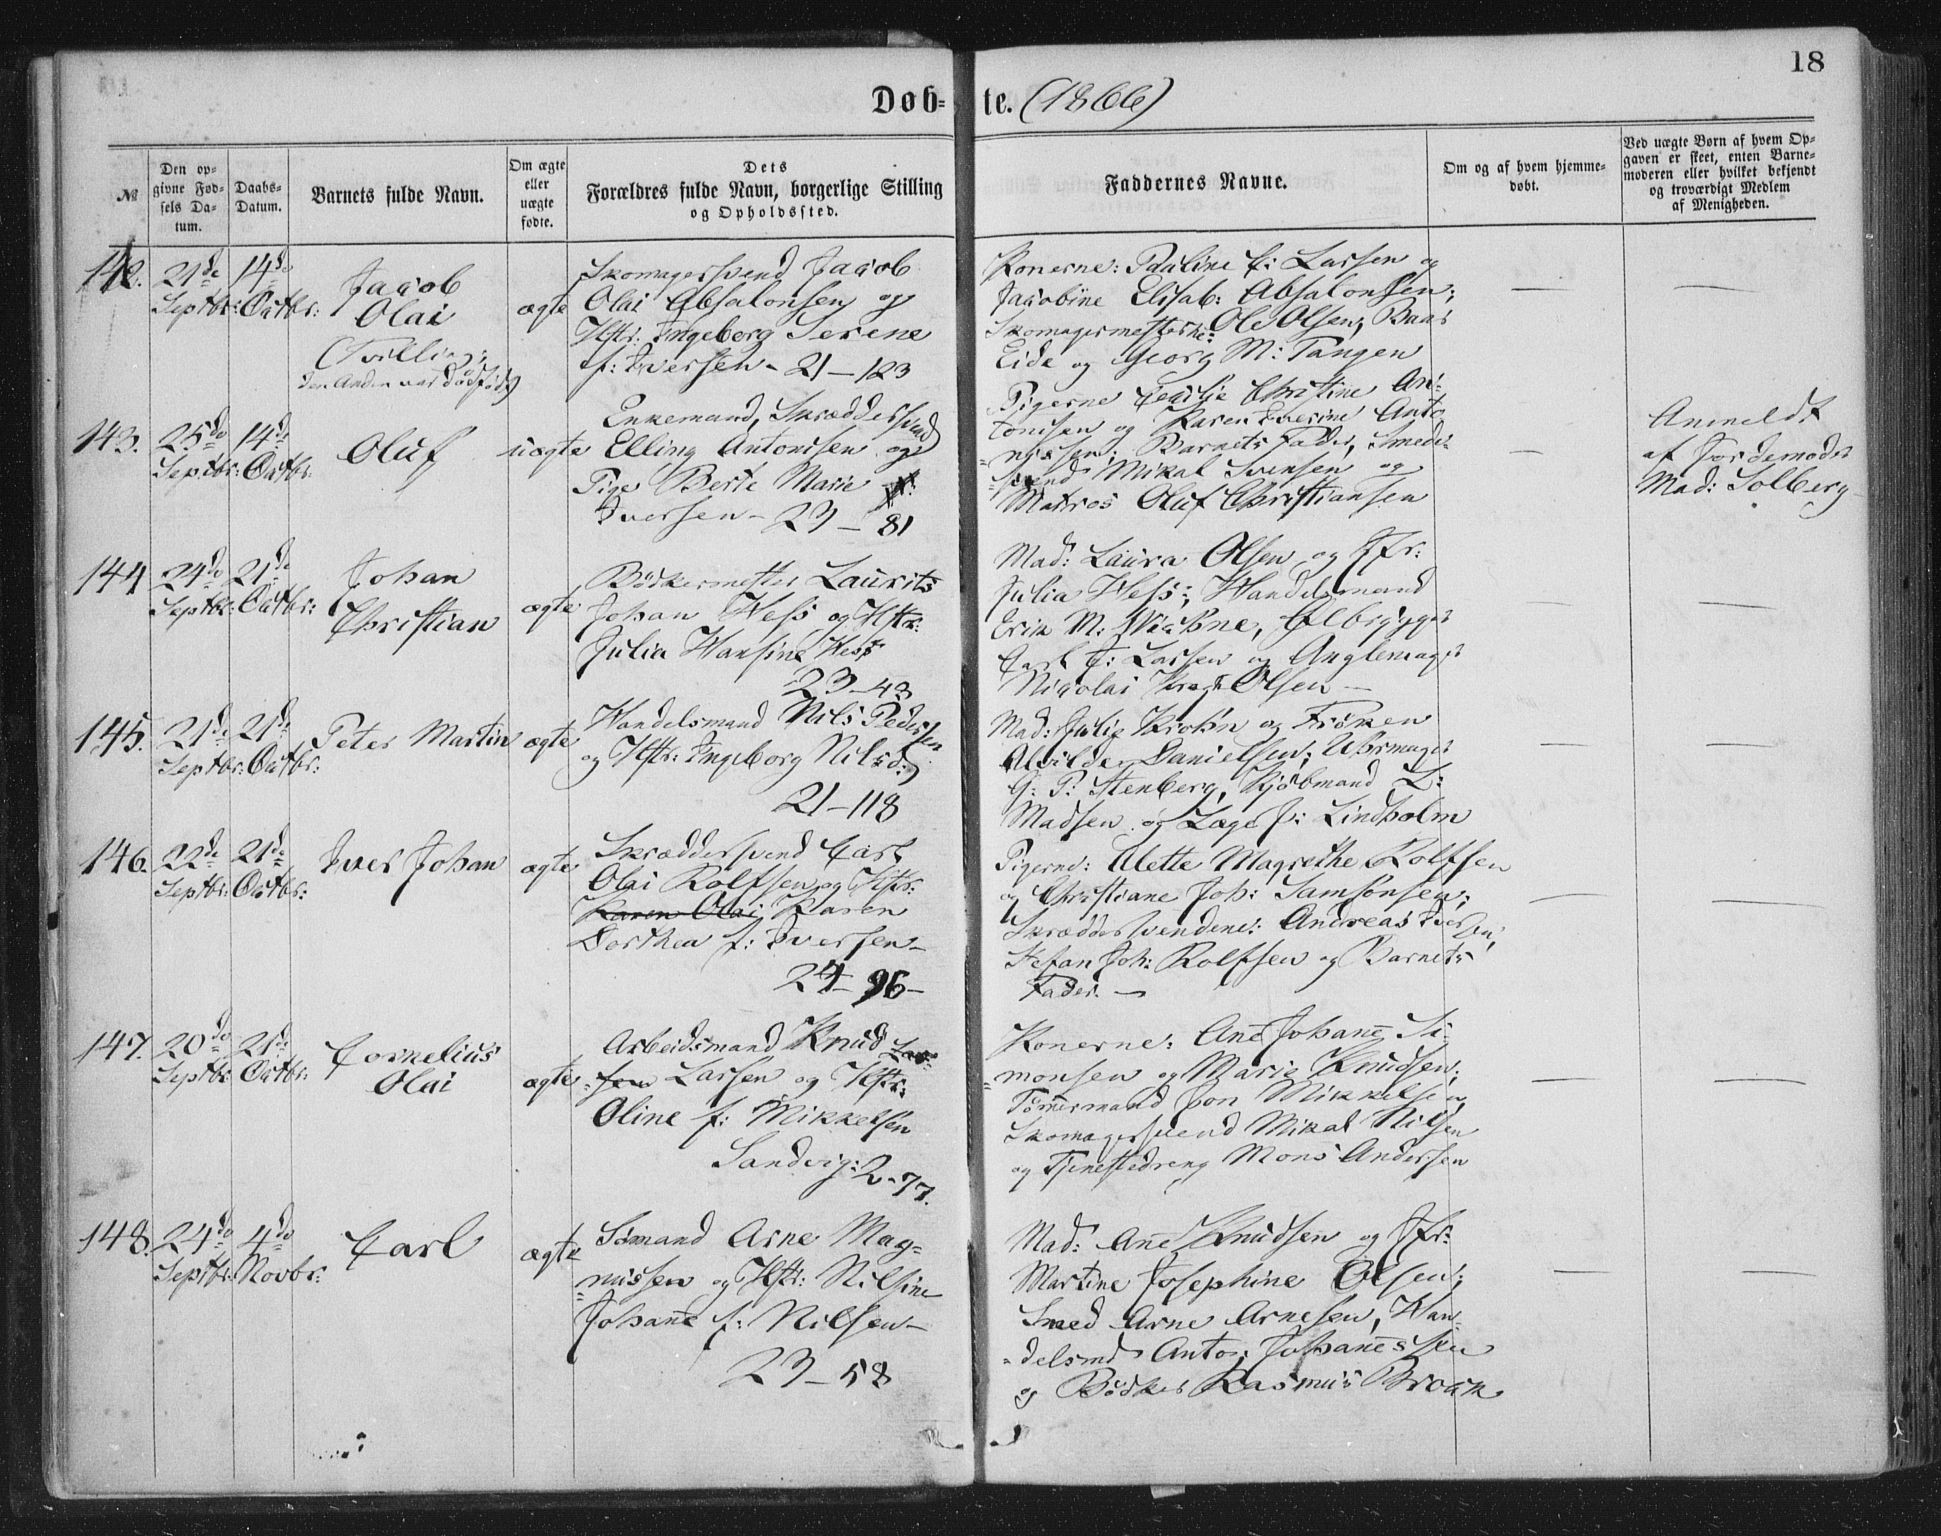 18
Døb-te. (1866)
№
Den op-
givne Fød-
sels Da-
tum.
Daabs-
Datum.
Barnets fulde Navn.
Om ægte
eller
uægte
fødte.
Dets
Forældres fulde Navn, borgerlige Stilling
og Opholdssted.
Faddernes Navne.
Om og af hvem hjemme-
døbt.
Ved uægte Børn af hvem Op-
gaven er skeet, enten Barne-
moderen eller hvilket bekjendt
og troværdigt Medlem
af Menigheden.
142.
21de
Septbr:
14de
Octbr:
Jacob
Olai
(Tvilling;
den Anden var dødfødt)
ægte
Skomagersvend Jacob
Olai Absalonsen og
Hstr: Ingeborg Serene
f: Iversen - 21-123
Konerne: Pauline C: Larsen og
Jacobine Elisab: Absalonsen;
Ole Olsen, Baas
Eide og Georg M: Tangen
143.
25de
Septbr:
14de
Octbr:
Oluf
uægte
Enkemand, Skræddersvend
Elling Antonisen og
Pige Berte Marie
Iversen - 23-81
Pigerne Cecilie Christine An-
tonisen og Karen Severine Anto-
nisen; Barnets Fader, Smede-
svend Mikal Svensen og
Matros Oluf Christiansen
Anmeldt
af Jordemoder
Mad: Solberg
144
24de
Septbr:
21de
Octbr:
Johan
Christian
ægte
Bødkermester Laurits
Johan Hess og Hstr:
Julia Hansine Hess
23-43
Mad: Laura Olsen og Jfr:
Julia Hess; Handelsmand
Erik M: Ølbrygger
Carl F: Larsen og
Nicolai Olsen —
145.
21de
Septbr:
21de
Octbr:
Peter Martin
ægte
Handelsmand Nils Pedersen
og Hstr: Ingeborg Nilsd:
21-118
Mad: Julie Krohn og Frøken
Alvilde Danielsen; Uhrmager
G: P: Stenberg, Kjøbmand L:
Madsen og Læge J: Lindholm
146.
22de
Septbr:
21de
Octbr:
Iver Johan
ægte
Skræddersvend Carl
Olai Rolfsen og Hstr:
Karen Olai Karen
Dorthea f: Iversen —
24-96-
Pigerne: Alette Magrethe Rolfsen
og Christiane Joh: Samsonsen;
Skræddersvendene: Andreas Iversen,
Stefan Joh: Rolfsen og Barnets
Fader. —
147.
20de
Septbr:
21de
Octbr:
Cornelius
Olai
ægte
Arbeidsmand Knud Lar-
sen Larsen og Hstr:
Oline f: Mikkelsen
Sandvig: 2-77.
Konerne: Ane Johane Si-
monsen og Marie Knudsen;
Tømmermand Jon Mikkelsen,
Skomagersvend Mikal Nilsen
og Tjenestedreng Mons Andersen
148.
24de
Septbr:
4de
Novbr:
Carl
ægte
Sømand Arne Mag-
nussen og Hstr: Nilsine
Johane f: Nilsen —
23-58
Mad: Ane Knudsen og Jfr:
Martine Josephine Olsen;
Smed Arne Arnesen, Han-
delsmd Anto: Johanessen
og Bødker Rasmus Broch